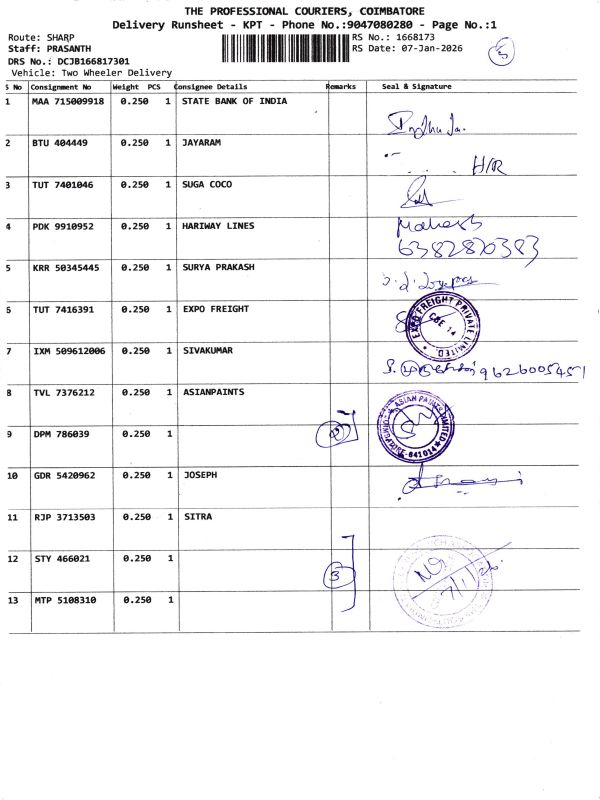 THE PROFESSIONAL COURIERS, COIMBATORE
Delivery Runsheet - KPT - Phone No.:9047080280 - Page No.:1
Route: SHARP
RS No.: 1668173
Staff: PRASANTH
RS Date: 07-Jan-2026
5
DRS No.: DCJB166817301
Vehicle: Two Wheeler Delivery
S No Consignment No Weight PCS Consignee Details Remarks Seal & Signature
1 MAA 715009918 0.250 1 STATE BANK OF INDIA
2 BTU 404449 0.250 1 JAYARAM
H/R
3 TUT 7401046 0.250 1 SUGA COCO
4 PDK 9910952 0.250 1 HARIWAY LINES Mahesh
6382820383
5 KRR 50345445 0.250 1 SURYA PRAKASH
6 TUT 7416391 0.250 1 EXPO FREIGHT
EXPO FREIGHT PRIVATE LIMITED
CBE 14
7 IXM 509612006 0.250 1 SIVAKUMAR
9626005451
8 TVL 7376212 0.250 1 ASIANPAINTS
ASIAN PAINTS LIMITED
641014
2
9 DPM 786039 0.250 1
10 GDR 5420962 0.250 1 JOSEPH
11 RJP 3713503 0.250 1 SITRA
12 STY 466021 0.250 1
3
7/1/26
13 MTP 5108310 0.250 1